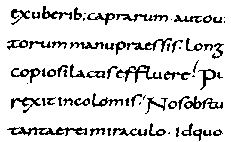 exuberib; caprarum autou
torum manu praessis. long
copiosi lactis effluere! Pi
rexit incolomis. Nos obstu
tanta erei miraculo. Id quo